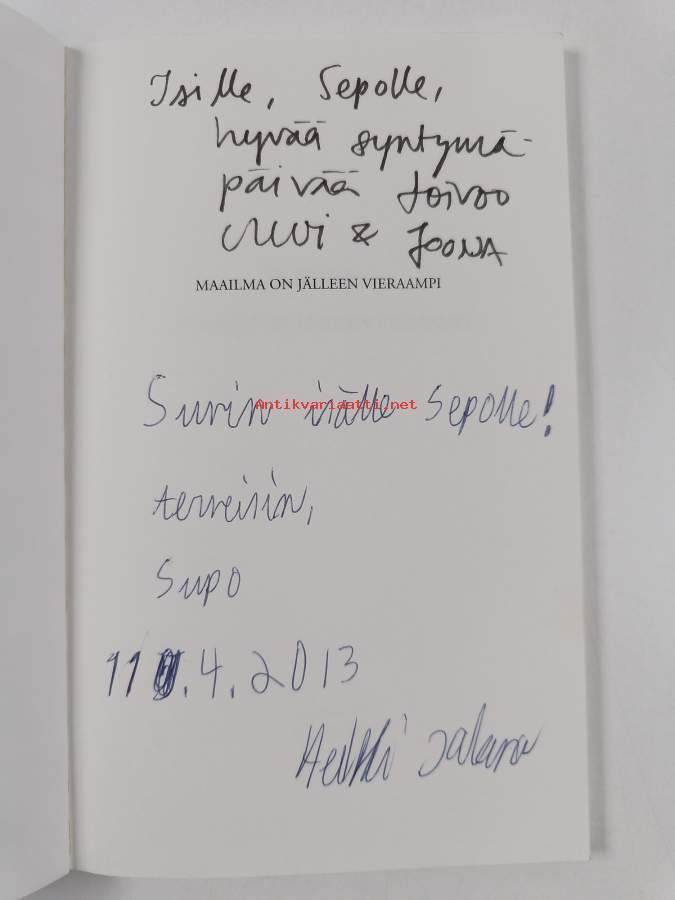 Isille, Sepolle,
hyvää syntymä-
päivää toivoo
Suvi & JOONA
MAAILMA ON JÄLLEEN VIERAAMPI
Suvin isälle Sepolle!
Antikvariaatti.net
terveisin,
Supo
11.4.2013
Heikki